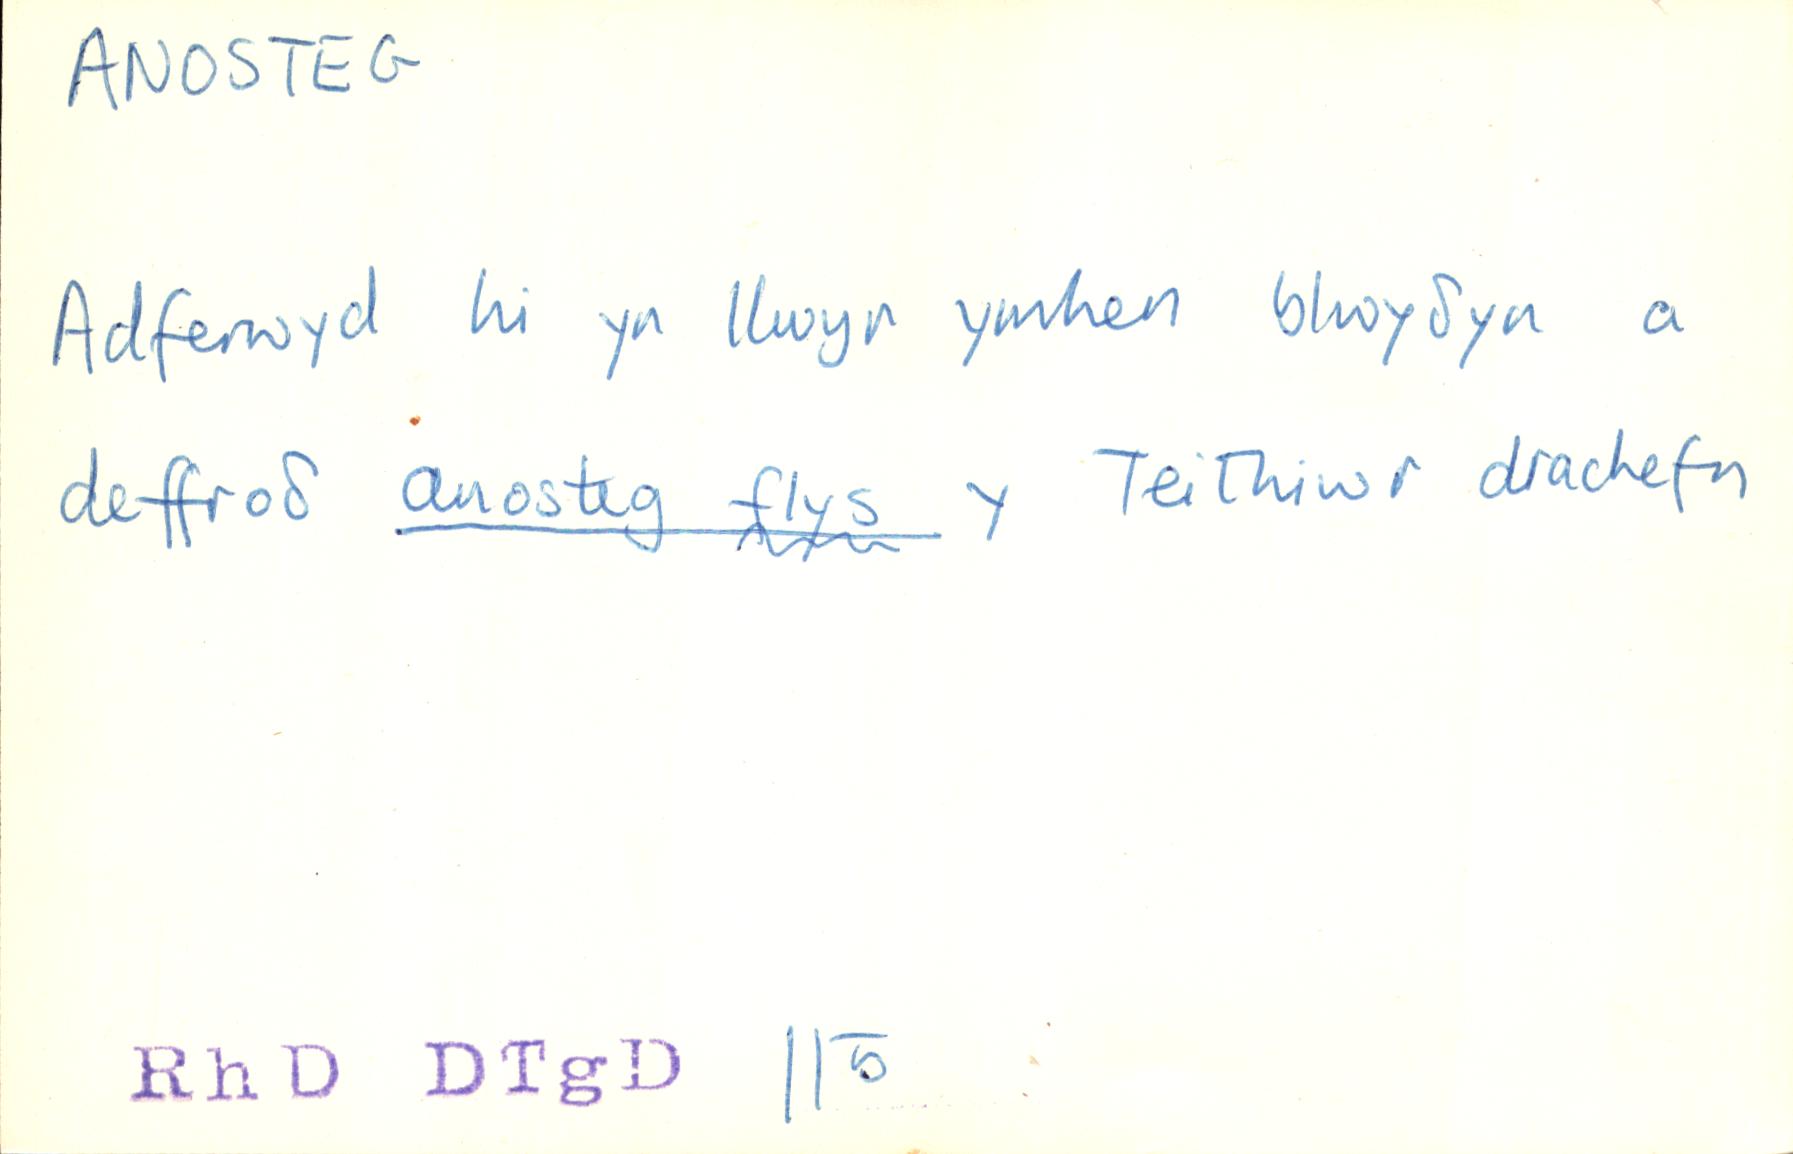 ANOSTEG
Adferwyd hi yn llwyr ymhen blwyδyn a
deffroδ anosteg flys y Teithiwr drachefn
RhD DTgD 115